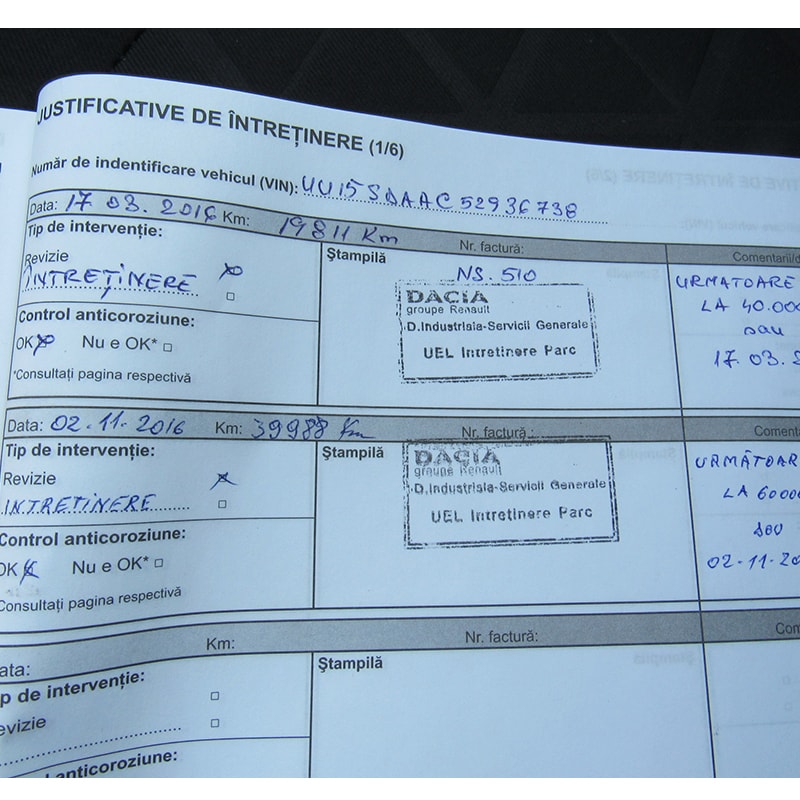 JUSTIFICATIVE DE ÎNTREȚINERE (1/6)
Număr de indentificare vehicul (VIN): UU15SDAAC52936738
Data: 17 03. 2016 Km: 19811 Km Nr. factură: Comentarii/
Tip de intervenție:
Revizie
ÎNTREȚINERE
Control anticoroziune:
OK Nu e OK*
*Consultați pagina respectivă
Ștampilă
NS. 510
DACIA
groupe Renault
D.Industrisia-Servicii Generale
UEL Intretinere Parc
URMATOARE
LA 40.000
sau
17. 03.
Data: 02-11-2016 Km: 39988 Km Nr. factură: Comenta
Tip de intervenție:
Revizie
INTREȚINERE
Control anticoroziune:
OK Nu e OK*
Consultați pagina respectivă
Ștampilă
DACIA
groupe Renault
D.Industrisia-Servicii Generale
UEL Intretinere Parc
URMĂTOAR
LA 60000
sau
02-11-20
ata: Km: Nr. factură: Com
ip de intervenție:
evizie
anticoroziune:
Ștampilă